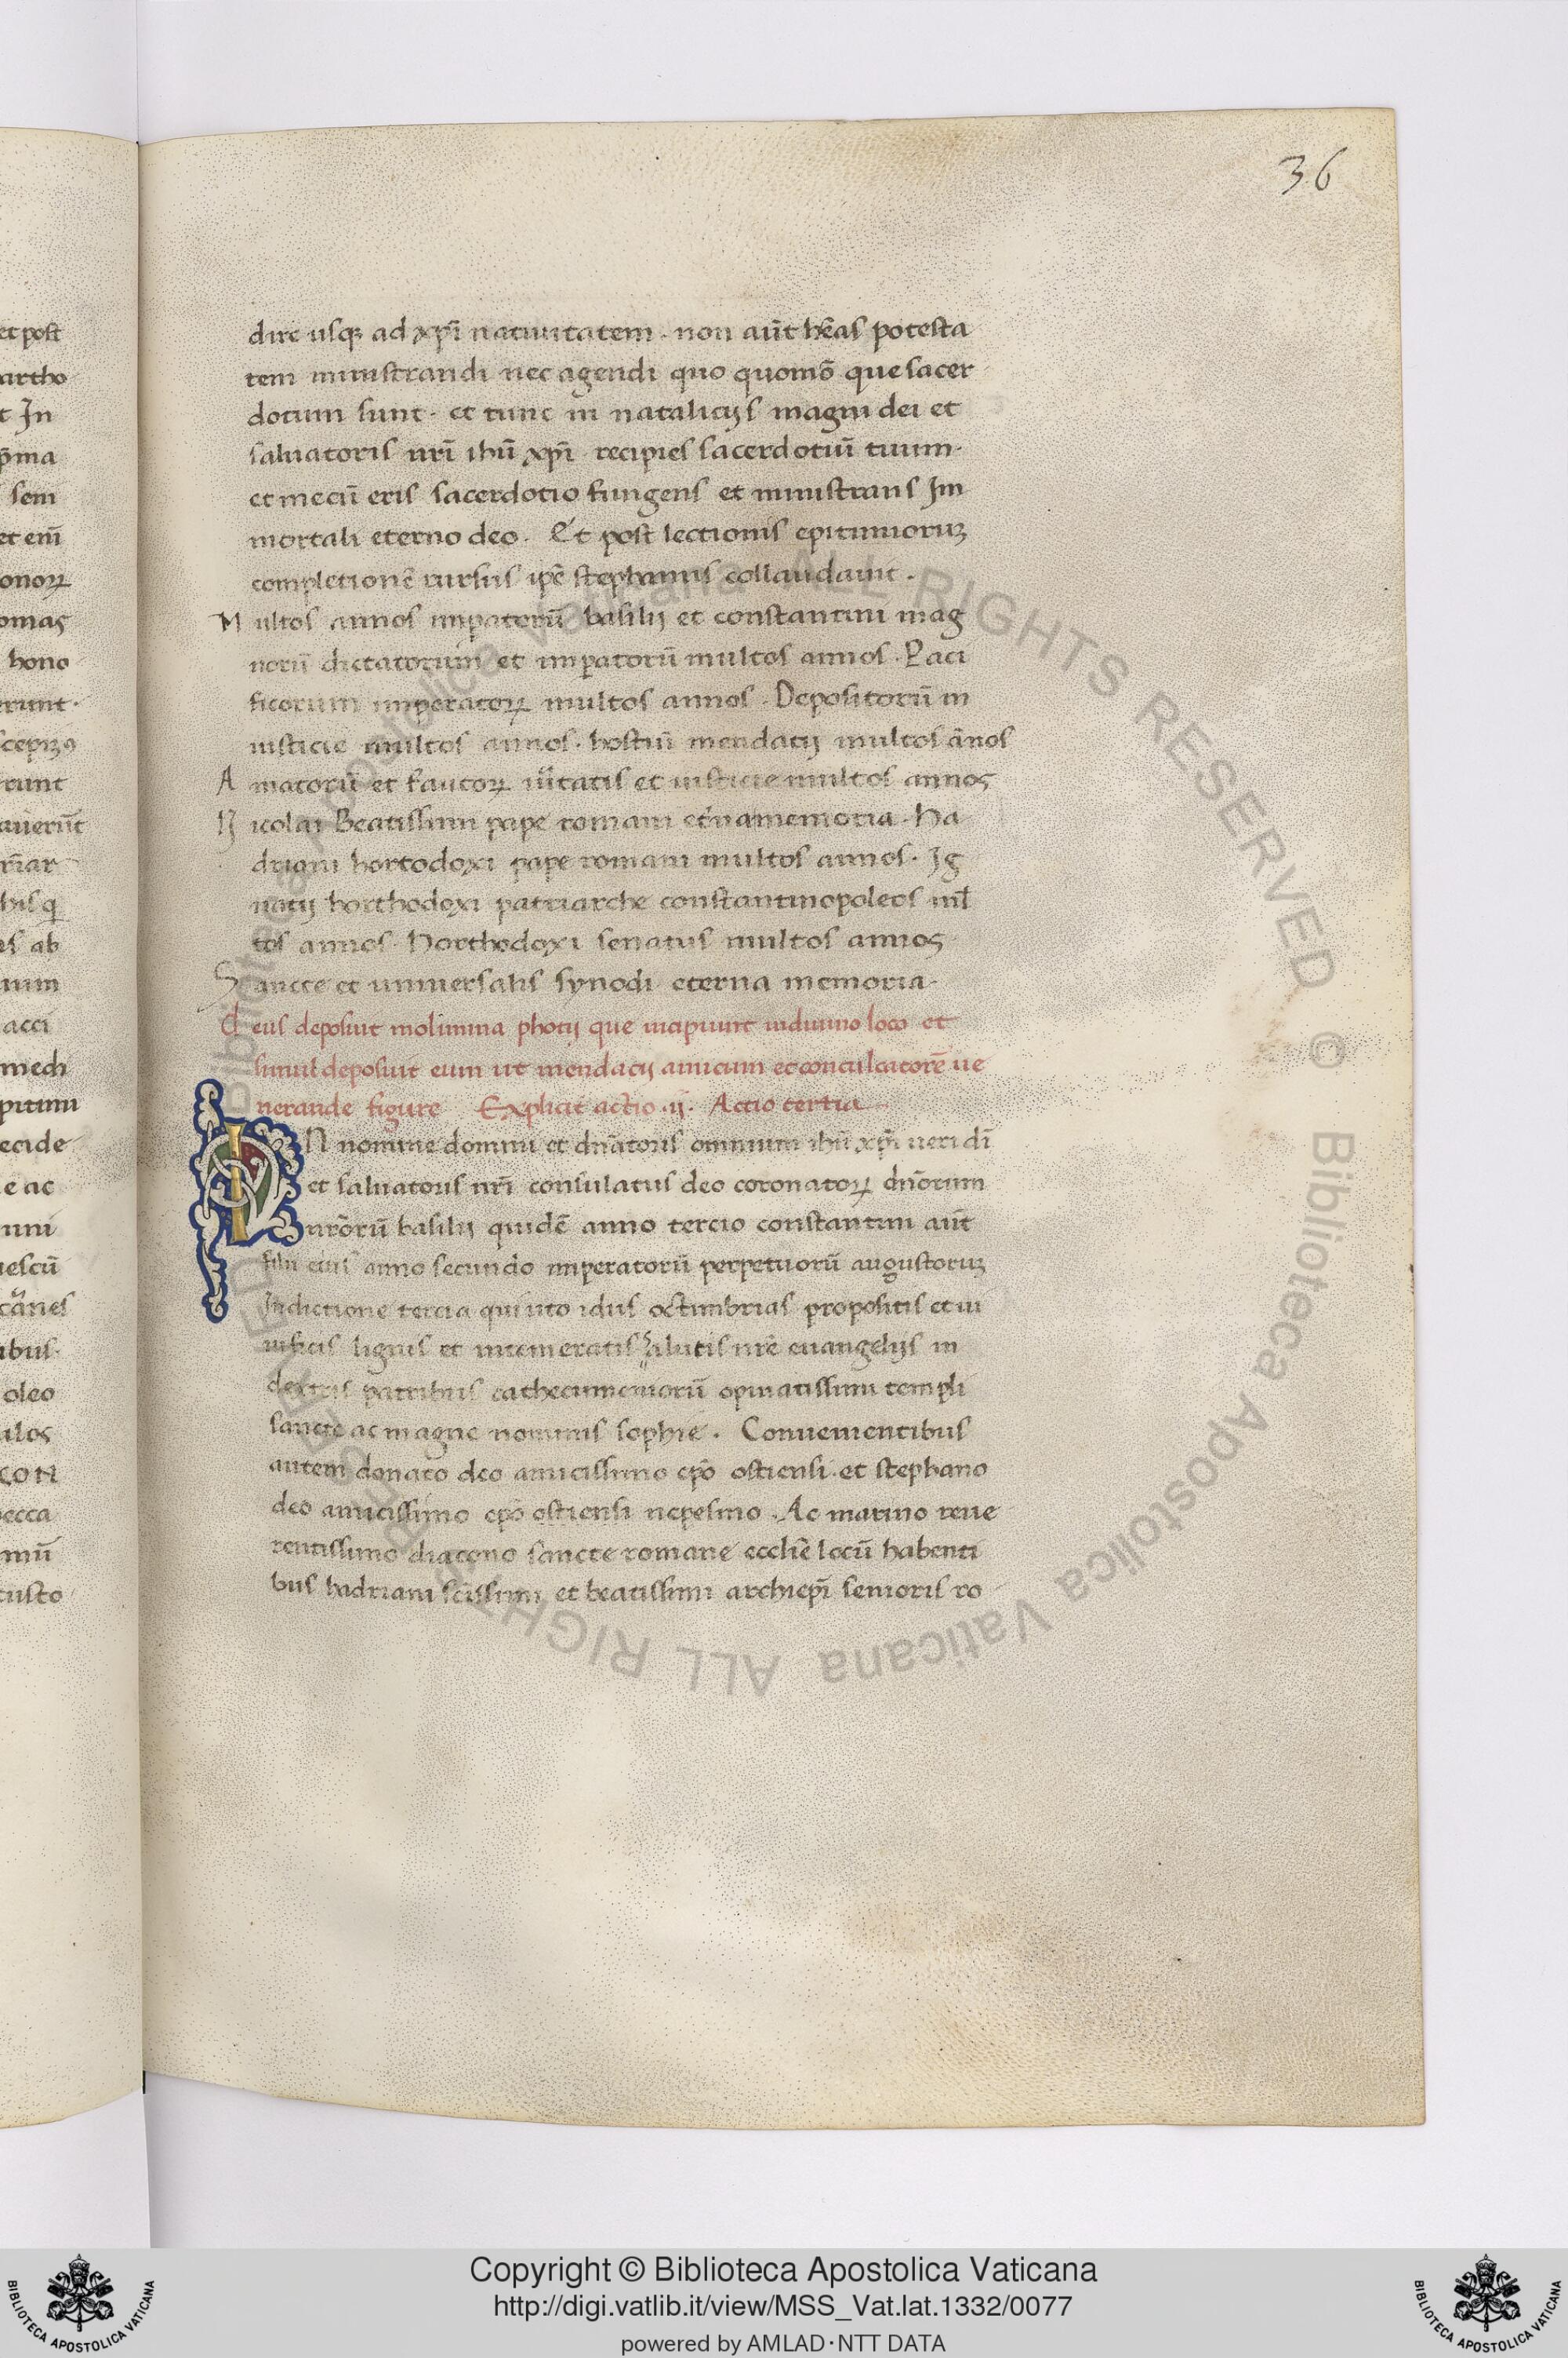 36
dire usqꝫ ad xp̄i natiuitatem · non aūt hēas potesta
tem ministrandi nec agendi quo quomō que sacer
dotum sunt · et tunc in natalicijs magni dei et
saluatoris nr̄i ihū xp̄i recipies sacerdotiū tuum ·
et mecū eris sacerdotio fungens et ministrans Im
mortali eterno deo . Et post lectionis epitimioruꝫ
completionē rursus ip̄e stephanus collaudauit .
Multos annos imꝑatorū basilij et constantini mag
norū dictatorum et imꝑatorū multos annos . Paci
ficorum imperatoꝝ multos annos . Depositorū in
iusticie multos annos . hostiū mendacij multos ānos
Amatorū et fautoꝝ ūitatis et iusticie multos annos
Nicolai Beatissimi pape romani et̄na memoria . Ha
driani hortodoxi pape romani multos annos . Ig
natij horthodoxi patriarche constantinopoleos ml̄
tos annos . Horthodoxi senatus multos annos
Sancte et uniuersalis synodi eterna memoria .
Deus deposuit molimina photij que incipiunt in diuino loco et
simul deposuit eum ut mendacij amicum et conculcatorē ue
nerande figure Explicit actio .ij. Actio tertia
IN nomine domini et dn̄atoris omnium ihū xp̄i ueri dī
et saluatoris nr̄i consulatus deo coronatoꝝ dn̄orum
nr̄orū basilij quidē anno tercio constantini aūt
filii eius anno secundo imperatorū perpetuorū augustoruꝫ
Indictione tercia quinto idus octimbrias propositis et ui
uificis lignis et intemeratis salutis nr̄e euangelijs in
dextris partibus cathecumeniorū opinatissimi templi
sancte ac magne nominis sophie . Conuenientibus
autem donato deo amicissimo ep̄o ostiensi . et stephano
deo amicissimo ep̄o ostiensi nepesino . Ac marino reue
rentissimo diacono sancte romane eccliē locū habenti
bus hadriani sc̄issimi et beatissimi archiep̄i senioris ro
Copyright © Biblioteca Apostolica Vaticana
http://digi.vatlib.it/view/MSS_Vat.lat.1332/0077
powered by AMLAD·NTT DATA